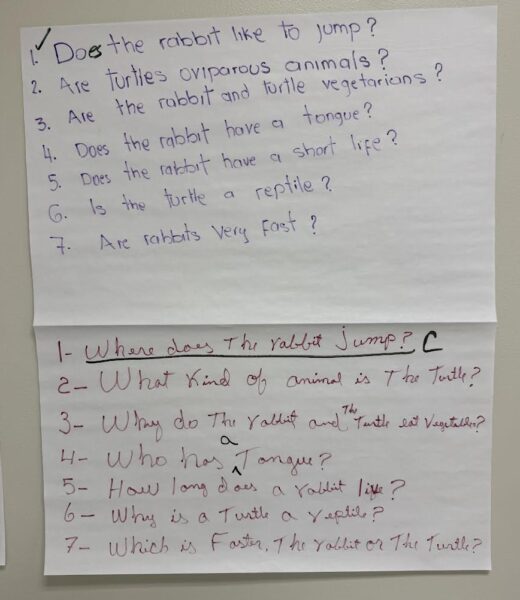 1.✓ Does the rabbit like to jump?
2. Are turtles oviparous animals?
3. Are the rabbit and turtle vegetarians?
4. Does the rabbit have a tongue?
5. Does the rabbit have a short life?
6. Is the turtle a reptile?
7. Are rabbits very fast?
1- Where does The rabbit jump? C
2- What Kind of animal is The Turtle?
3- Why do The rabbit and The Turtle eat Vegetables?
4- Who has a Tongue?
5- How long does a rabbit live?
6- Why is a Turtle a reptile?
7- Which is Faster, The rabbit or The Turtle?